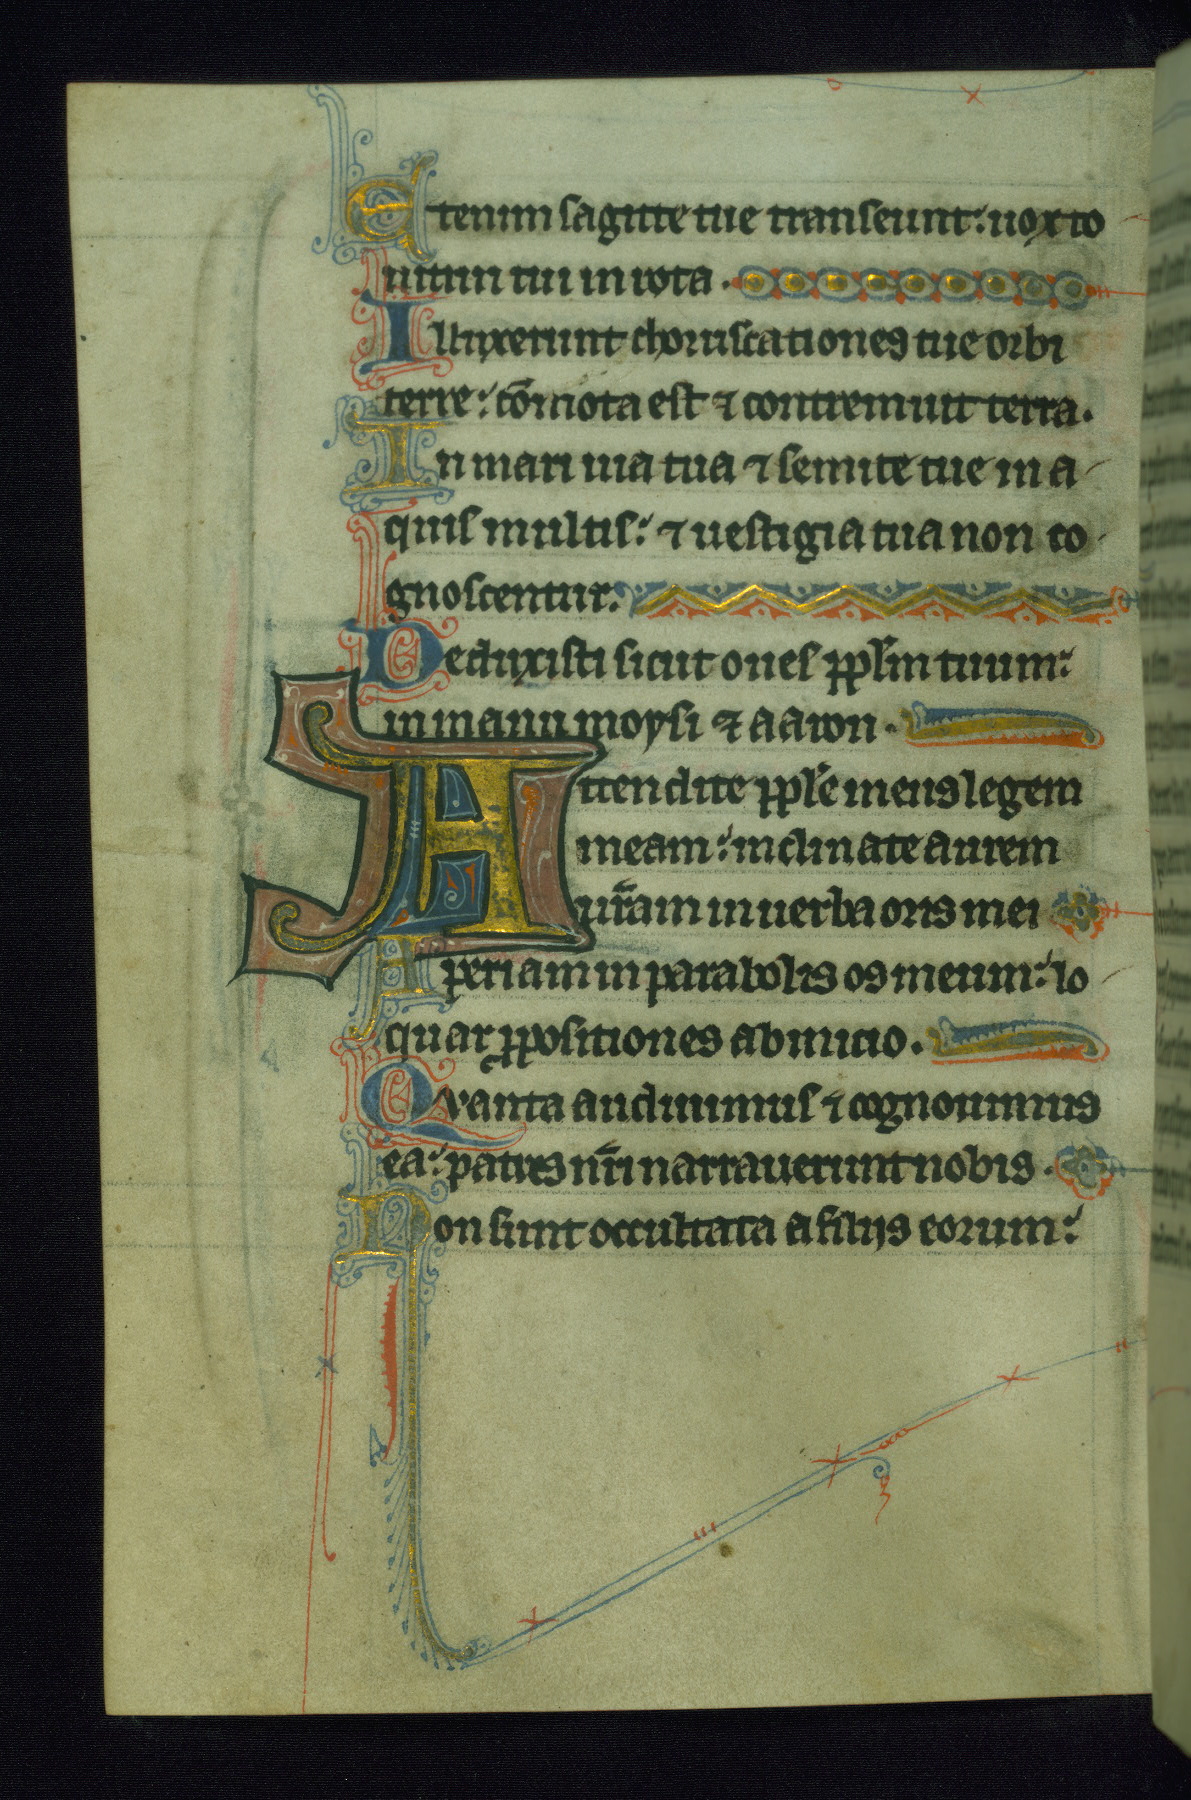 Etenim sagitte tue transeunt: uox to
nitrui tui in rota.
Illuxerunt choruscationes tue orbi
terre: cōmota est ⁊ contremuit terra.
In mari uia tua ⁊ semite tue in a
quis multis: ⁊ uestigia tua non co
gnoscentur.
Deduxisti sicut oues ppl̄m tuum:
in manu moysi ⁊ aaron.
Attendite ppl̄e meus legem
meam: inclinate aurem
ur̄am in uerba oris mei
Aperiam in parabolis os meum: lo
quar ꝓpositiones ab inicio.
Qvanta audiuimus ⁊ cognouimus
ea: patres nr̄i narrauerunt nobis.
Non sunt occultata a filijs eorum: